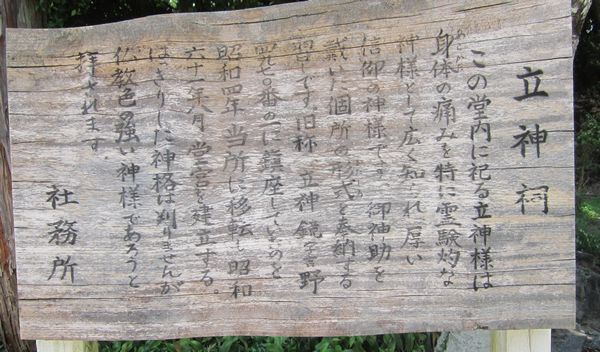 立神祠
この堂内に祀る立神様は
身体の痛みを特に霊験灼な
神様として広く知られ厚い
信仰の神様で 御神助を
戴いた個所の形式を奉納する
習しです。旧称 立神鏡 野
四七〇番の に鎮座していたものを
昭和四年、当所に移転し昭和
六十一年 月、堂宮を建立する。
はっきりした神格は判りませんが
仏教色の強い神様であろうと
拝されます。
社務所